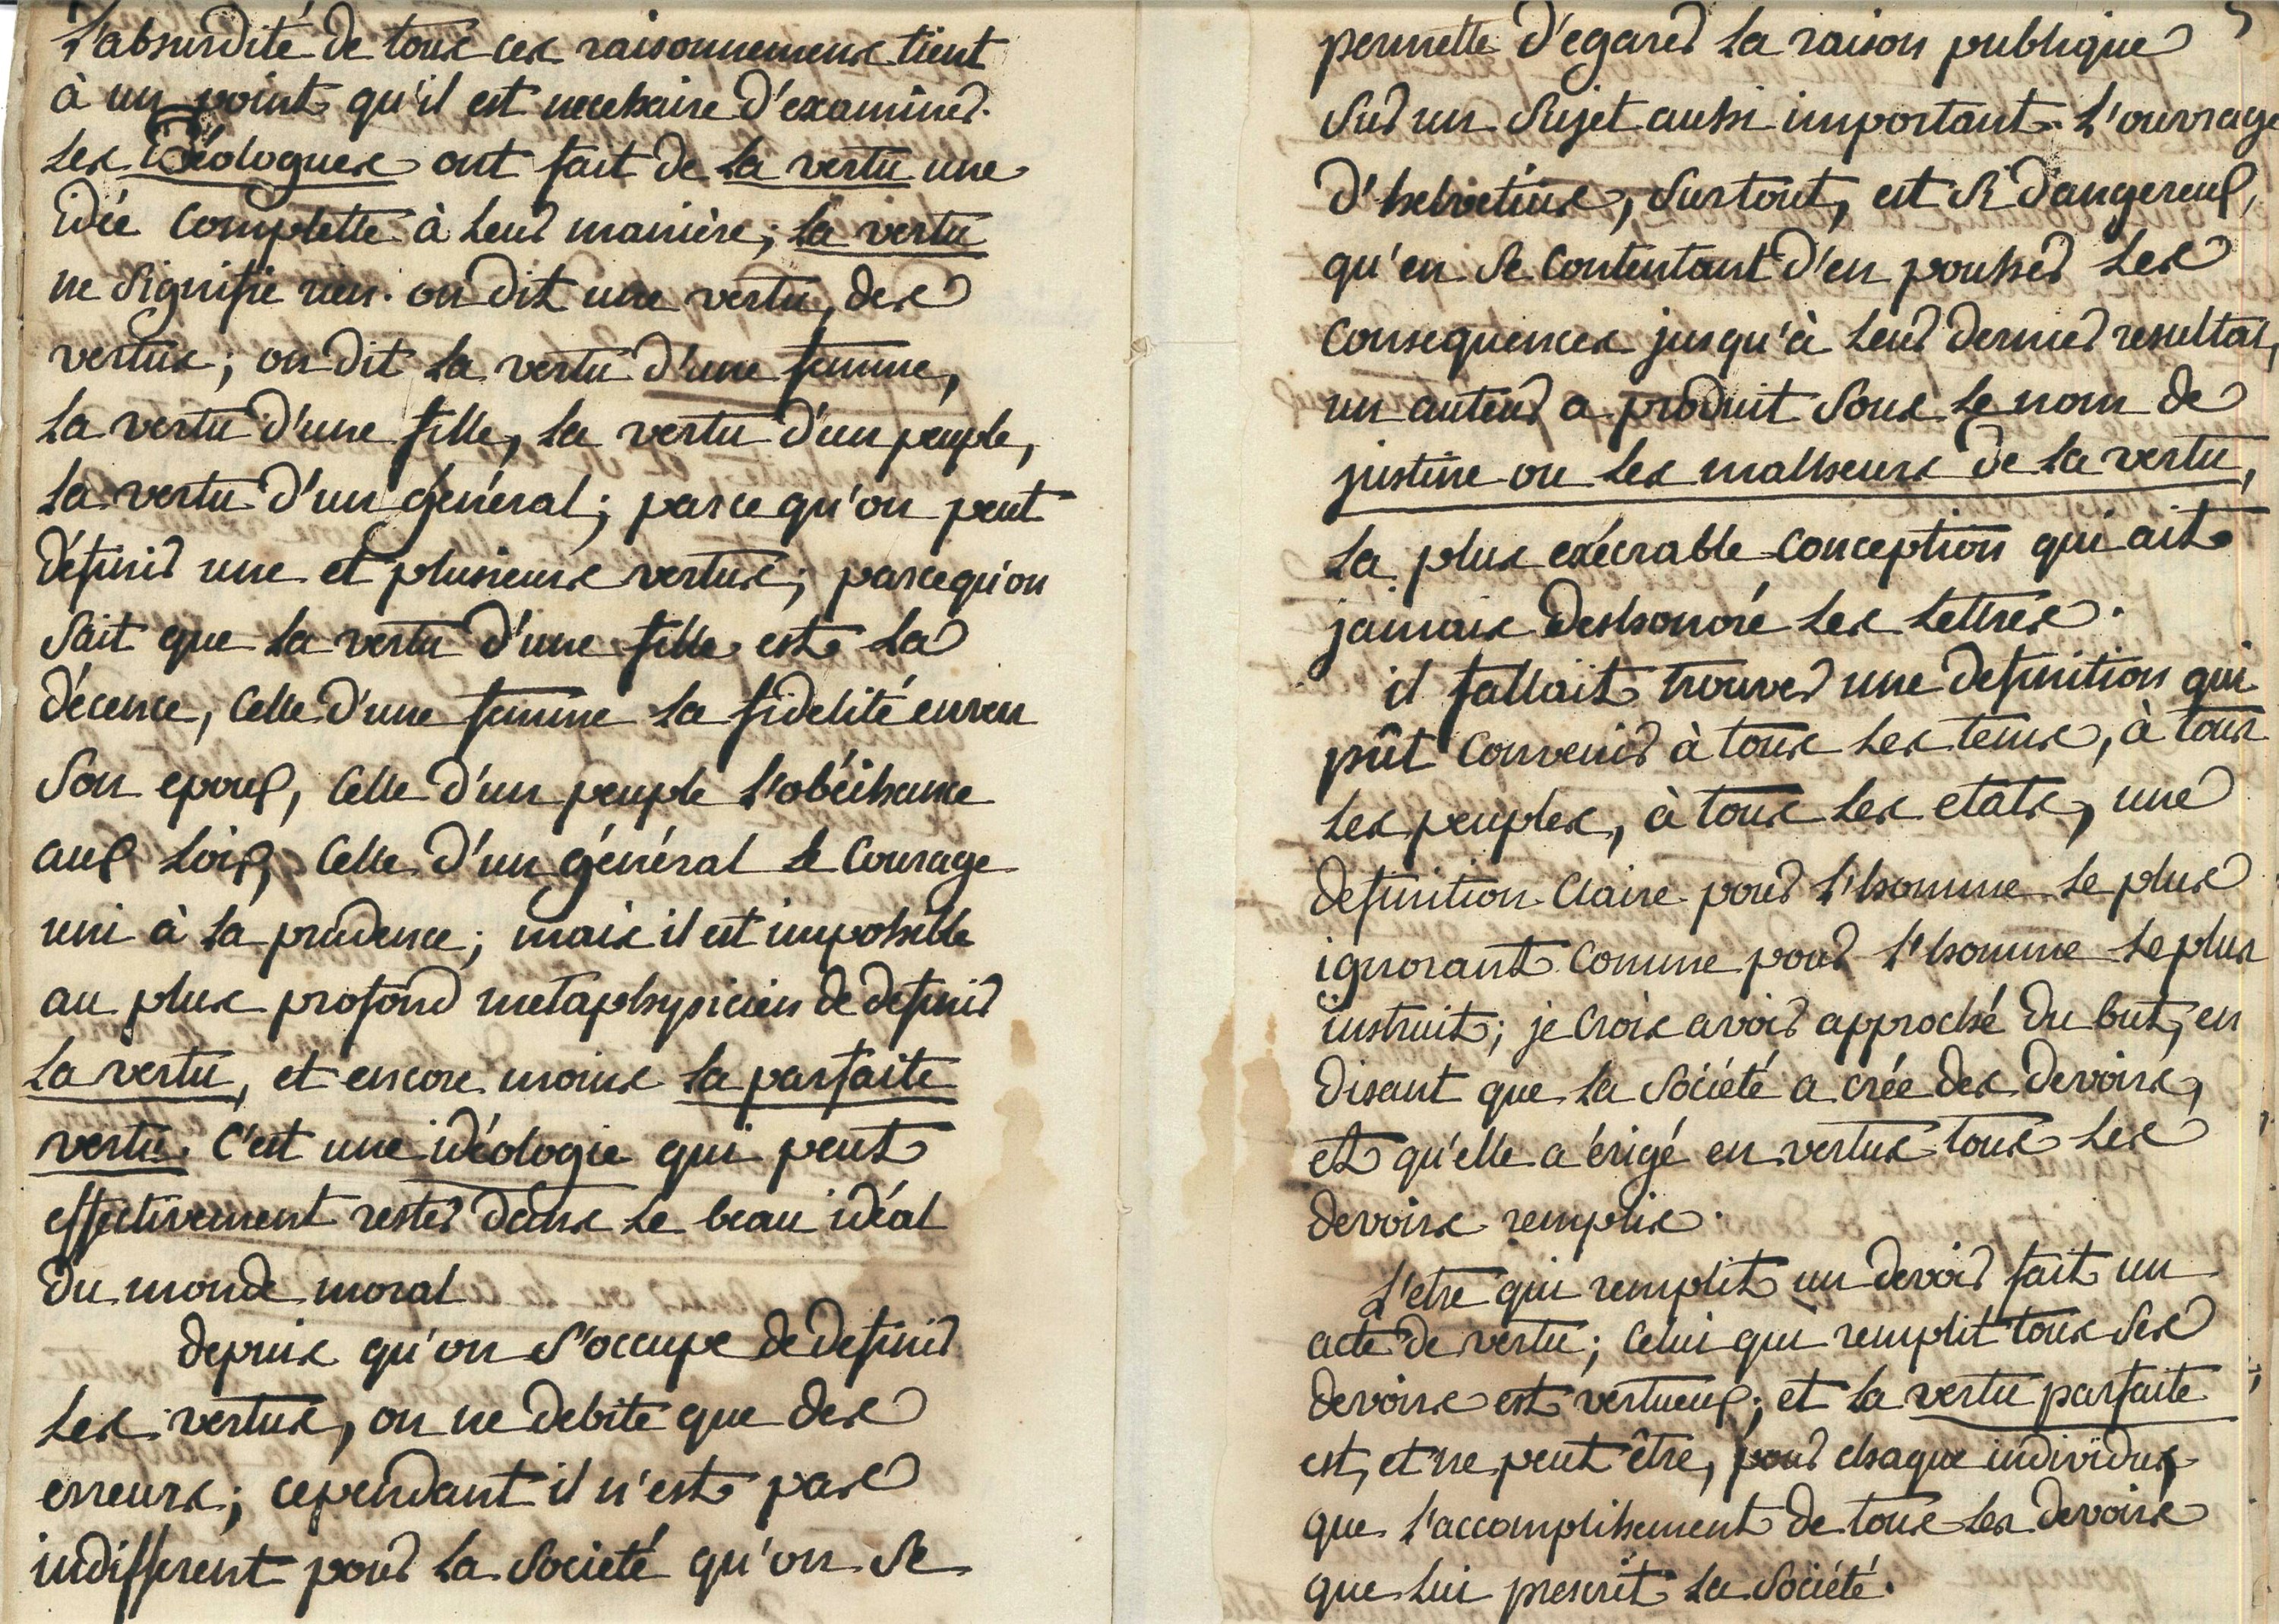 L'absurdité de tous ces raisonnemens tient
à un point qu'il est necessaire d'examiner.
Les idéologues ont fait de la vertu une
idée complette à leur manière; la vertu
ne signifie rien. on dit une vertu, des
vertus; on dit la vertu d'une femme,
la vertu d'une fille, la vertu d'un peuple,
la vertu d'un général; parce qu'on peut
définir une et plusieurs vertus; parcequ'on
sait que la vertu d'une fille est la
décence, celle d'une femme la fidelité envers
son epoux, celle d'un peuple l'obéissance
aux loix, celle d'un général le courage
uni à la prudence; mais il est impossible
au plus profond metaphysicien de definir
la vertu, et encore moins la parfaite
vertu. C'est une idéologie qui peut
effectivement rester dans le beau idéal
du monde moral
depuis qu'on s'occupe de definir
les vertus, on ne debite que des
erreurs; cependant il n'est pas
indifferent pour la societé qu'on se
permette d'egarer la raison publique
sur un sujet aussi important. L'ouvrage
d'helvetius, surtout, est si dangereux,
qu'en se contentant d'en pousser les
consequences jusqu'à leur dernier resultat,
un auteur a produit sous le nom de
justine ou les malheurs de la vertu,
la plus exécrable conception qui ait
jamais deshonoré les lettres.
il fallait trouver une definition qui
pût convenir à tous les tems, à tous
les peuples, à tous les etats, une
definition claire pour l'homme le plus
ignorant comme pour l'homme le plus
instruit; je crois avoir approché du but, en
disant que la société a crée des devoirs,
et qu'elle a érigé en vertus tous les
devoirs remplis.
L'etre qui remplit un devoir fait un
acte de vertu; celui qui remplit tous ses
devoirs est vertueux; et la vertu parfaite
est, et ne peut être, pour chaque individu,
que l'accomplissement de tous les devoirs
que lui prescrit la société.